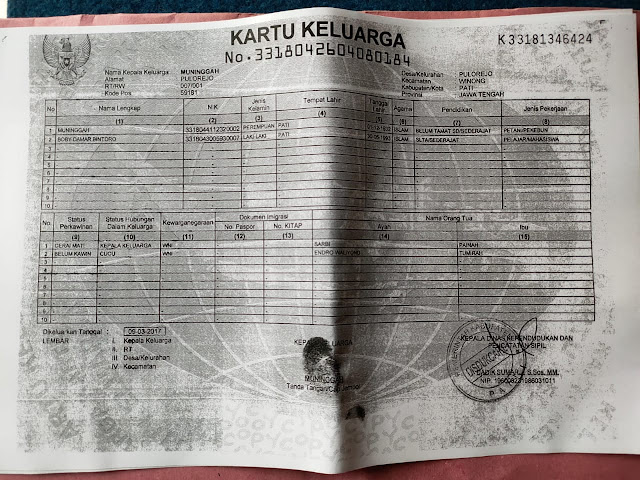 KARTU KELUARGA
No. 3318042604080184
K 33181346424
Nama Kepala Keluarga : MUNINGGAH
Alamat : PULOREJO
RT/RW : 007/001
Kode Pos : 59181
Desa/Kelurahan : PULOREJO
Kecamatan : WINONG
Kabupaten/Kota : PATI
Provinsi : JAWA TENGAH
No Nama Lengkap NIK Jenis Kelamin Tempat Lahir Tanggal Lahir Agama Pendidikan Jenis Pekerjaan
(1) (2) (3) (4) (5) (6) (7) (8)
1 MUNINGGAH PEREMPUAN PATI ISLAM BELUM TAMAT SD/SEDERAJAT PETANI/PEKEBUN
2 BOBY DAMAR BINTORO LAKI-LAKI PATI ISLAM SLTA/SEDERAJAT PELAJAR/MAHASISWA
3
4
5
6
7
8
9
10
No. Status Perkawinan Status Hubungan Dalam Keluarga Kewarganegaraan Dokumen Imigrasi Nama Orang Tua
No. Paspor No. KITAP Ayah Ibu
(9) (10) (11) (12) (13) (14) (15)
1 CERAI MATI KEPALA KELUARGA WNI SARBI PAINAH
2 BELUM KAWIN CUCU WNI ENDRO TUMIRAH
3
4
5
6
7
8
9
10
Dikeluarkan Tanggal : 09-03-2017
LEMBAR : I. Kepala Keluarga
II. RT
III. Desa/Kelurahan
IV. Kecamatan
MUNINGGAH
Tanda Tangan/Cap Jempol
KEPALA DINAS KEPENDUDUKAN DAN
PENCATATAN SIPIL
S.Sos, MM.
NIP.